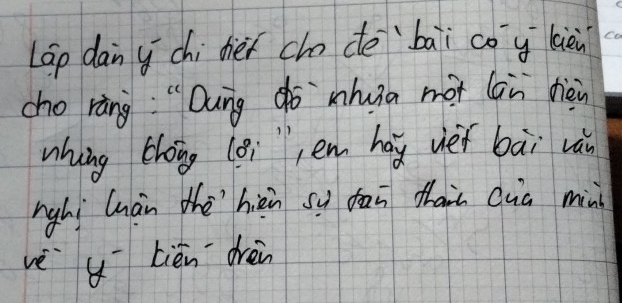 Lập dàn ý chi tiết cho đề bài có ý kiến
cho rằng : "Dùng đồ nhựa một lần tiện
nhưng không lợi", em hãy viết bài văn
nghị luận thể hiện sự tán thành của mình
về ý kiến trên